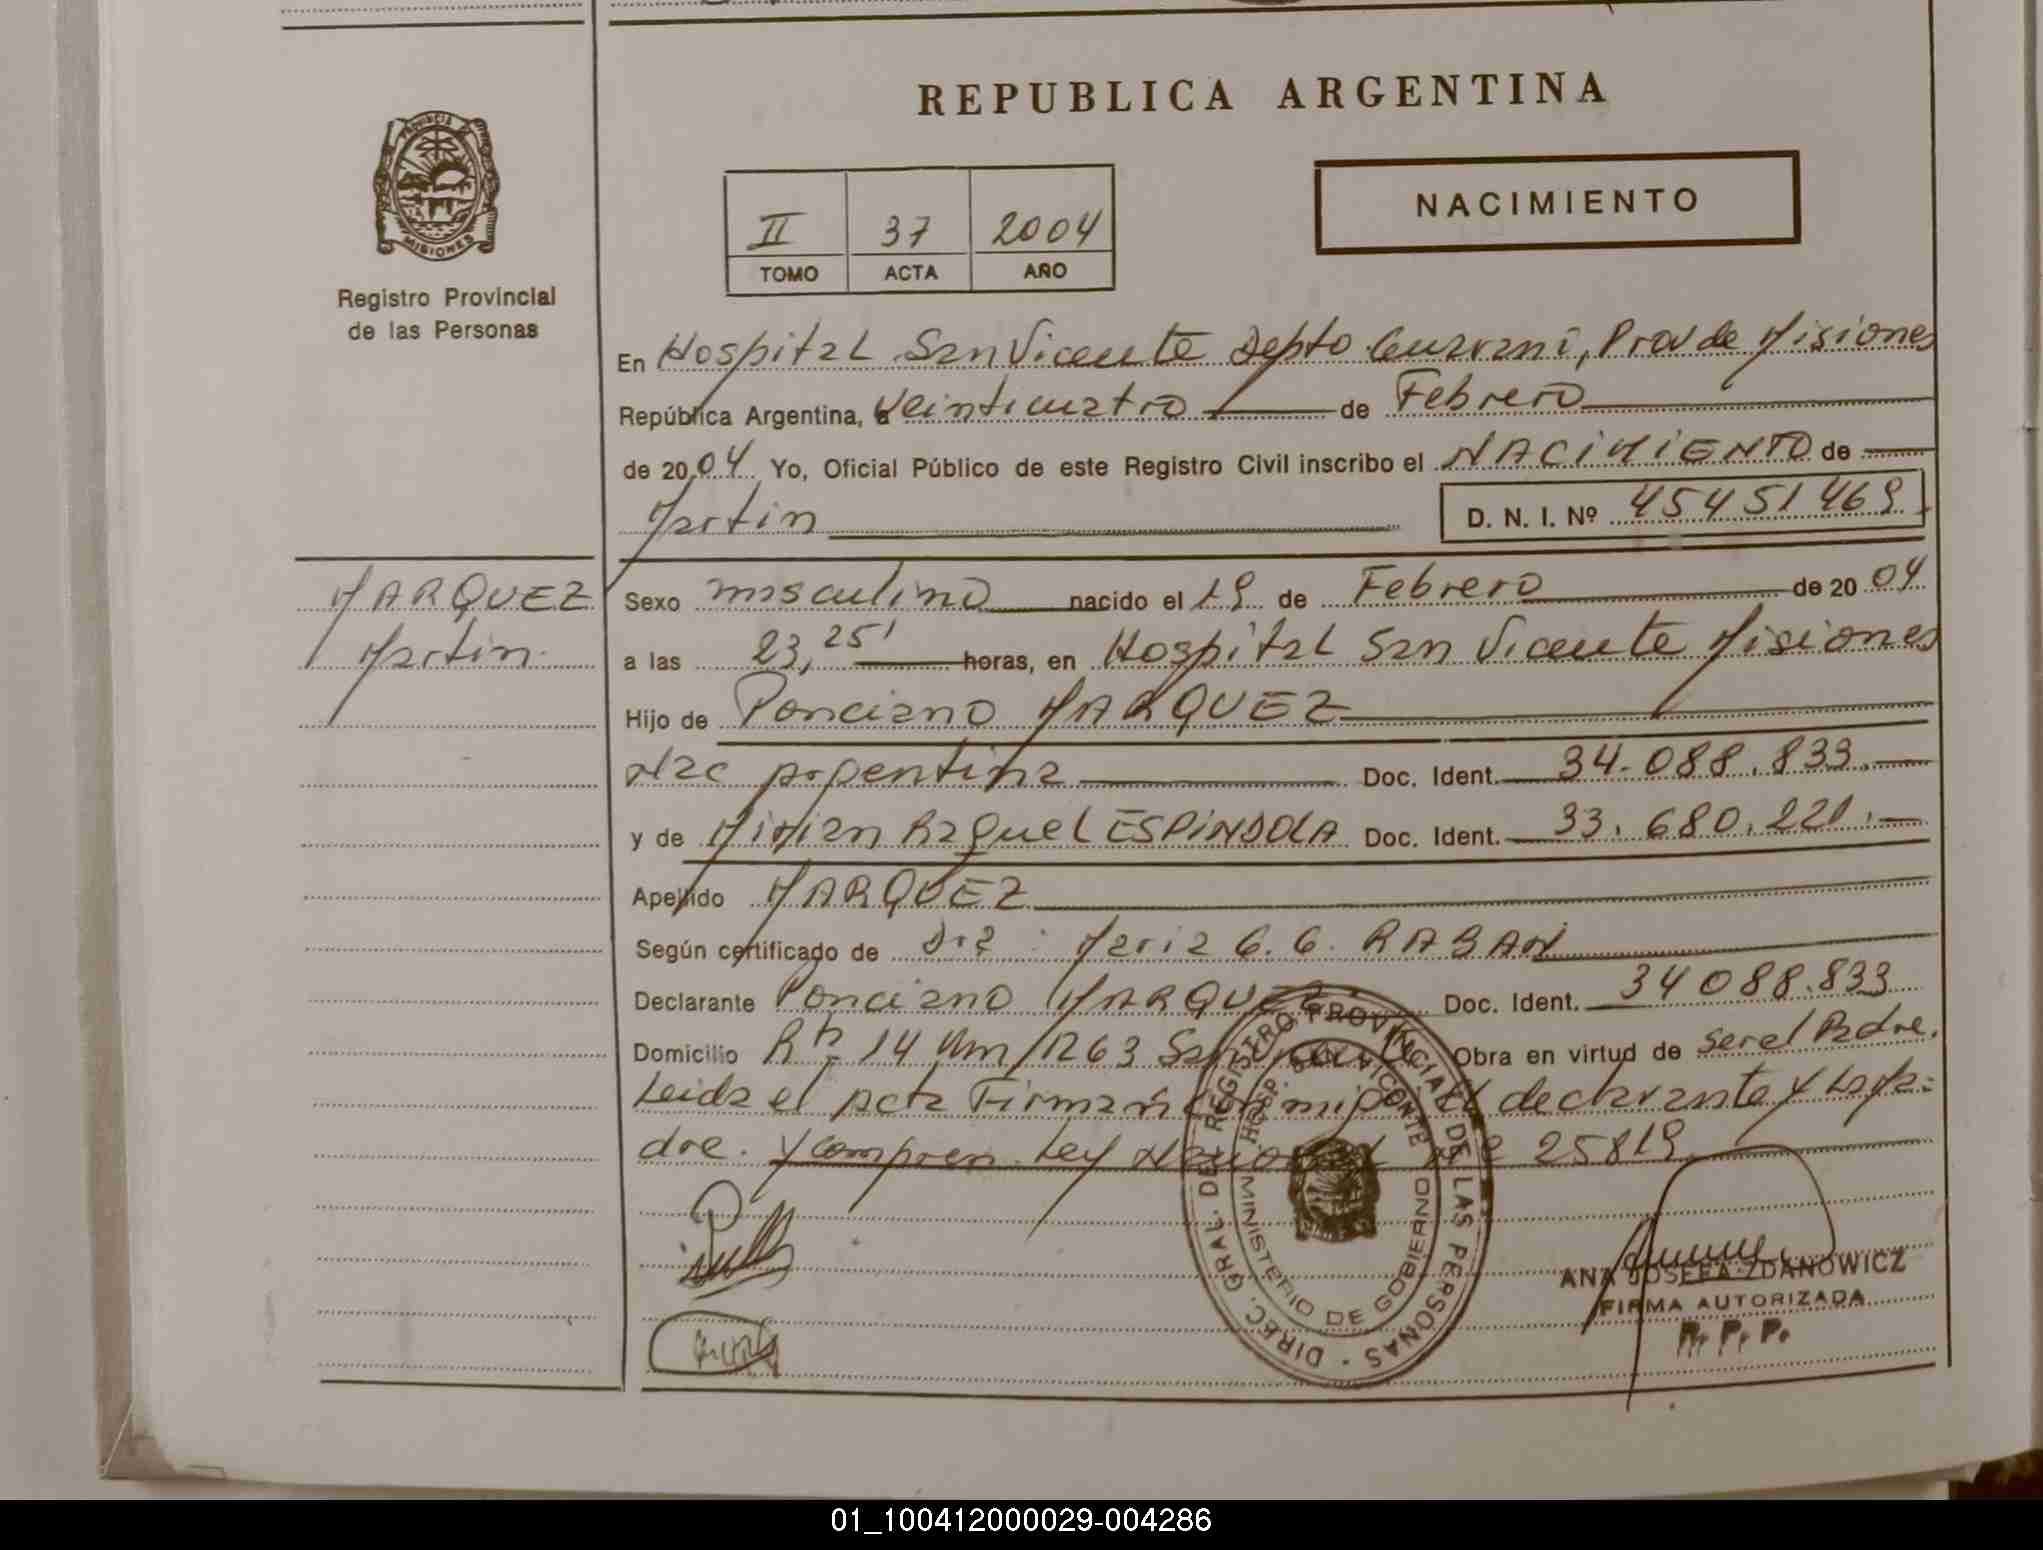 REPUBLICA ARGENTINA
PROVINCIA DE
MISIONES
Registro Provincial
de las Personas
II 37 2004
TOMO ACTA AÑO
NACIMIENTO
En Hospital San Vicente Depto Guarani, Prov de Misiones
República Argentina, a Veinticuatro de Febrero
de 2004 Yo, Oficial Público de este Registro Civil inscribo el NACIMIENTO de
Martin D. N. I. Nº 45451469
MARQUEZ
Martin
Sexo masculino nacido el 19 de Febrero de 2004
a las 23,25' horas, en Hospital San Vicente Misiones
Hijo de Ponciano MARQUEZ
Nac Argentina Doc. Ident. 34.088.833.
y de Mirian Raquel ESPINDOLA Doc. Ident. 33.680.221.
Apellido MARQUEZ
Según certificado de Dra: Maria G. G. RABAN
Declarante Ponciano MARQUEZ Doc. Ident. 34088.833
Domicilio Rta 14 Km/1263 San Vicente Obra en virtud de ser el Padre.
Leida el acta Firman conmigo el declarante y La Ma=
dre. y compren. Ley Nacional Nº 25819
DIREC. GRAL. DEL REGISTRO PROVINCIAL DE LAS PERSONAS
HOSP. SAN VICENTE
MINISTERIO DE GOBIERNO
ANA JOSEFA ZDANOWICZ
FIRMA AUTORIZADA
R. P. P.
01_100412000029-004286